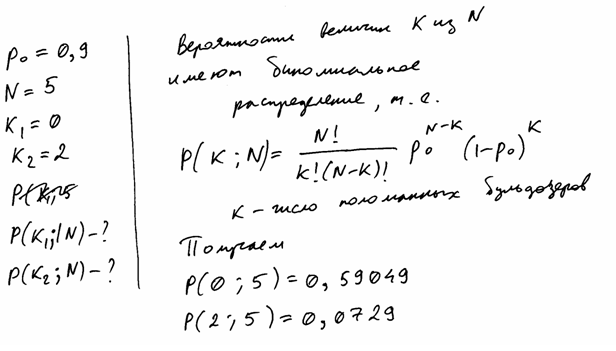 p₀ = 0,9
N = 5
K₁ = 0
K₂ = 2
P(K₁; N) - ?
P(K₂; N) - ?
Вероятности величин K из N
имеют биномиальное
распределение, т.е.
P(K; N) = N! / (K!(N-K)!) p₀^(N-K) (1-p₀)^K
K - число поломанных бульдозеров
Получаем
P(0; 5) = 0,59049
P(2; 5) = 0,0729